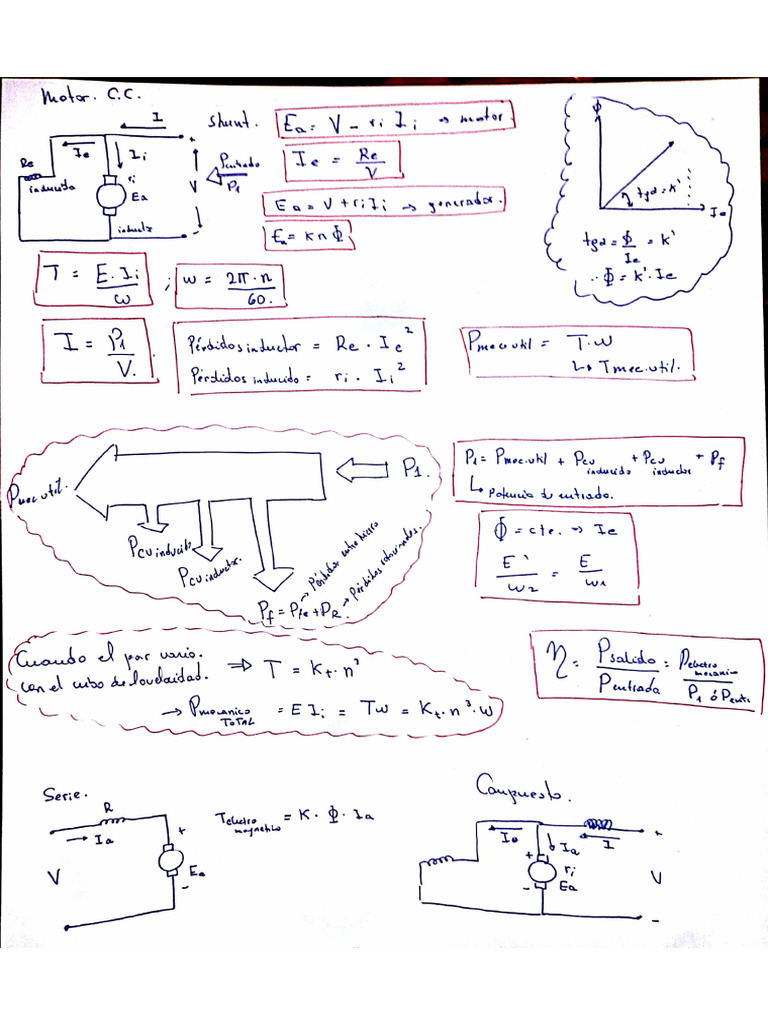 Motor. C.C.
shunt.
I
Ea = V - ri Ii → motor
Ie = Re/V
Ea = V + ri Ii → generador.
Ea = K n Φ
Re
inducida
Ie
Ii
ri
Ea
inductor
+
V
-
Pentrada
P1
Φ
tgα = k'
Ie
tgα = Φ/Ie = k'
∴ Φ = k' · Ie
T = E · Ii / ω ; w = 2π · n / 60.
I = P1 / V.
Pérdidas inductor = Re · Ie²
Pérdidas inducido = ri · Ii²
Pmec util = T · w
↳ Tmec.util.
Pmec util.
P1.
Pcu inducido
Pcu inductor.
Pf = Pfe + PR.
Pérdidas rotacionales.
P1 = Pmec.util + Pcu inducido + Pcu inductor + Pf
↳ potencia de entrada.
Φ = cte. ⇒ Ie
E'/w2 = E/w1
Cuando el par varia.
con el cubo de la velocidad.
⇒ T = Kt · n³
→ Pmecanico TOTAL = E Ii = Tw = Kt · n³ · w
η = Psalida / Pentrada = Pelectro mecani / P1 ó Pent.
Serie.
R
Ia
+
V
Ea
-
Telectro magnetico = K · Φ · Ia
Compuesto.
Ie
I
+
Ia
+
ri
Ea
-
V
-